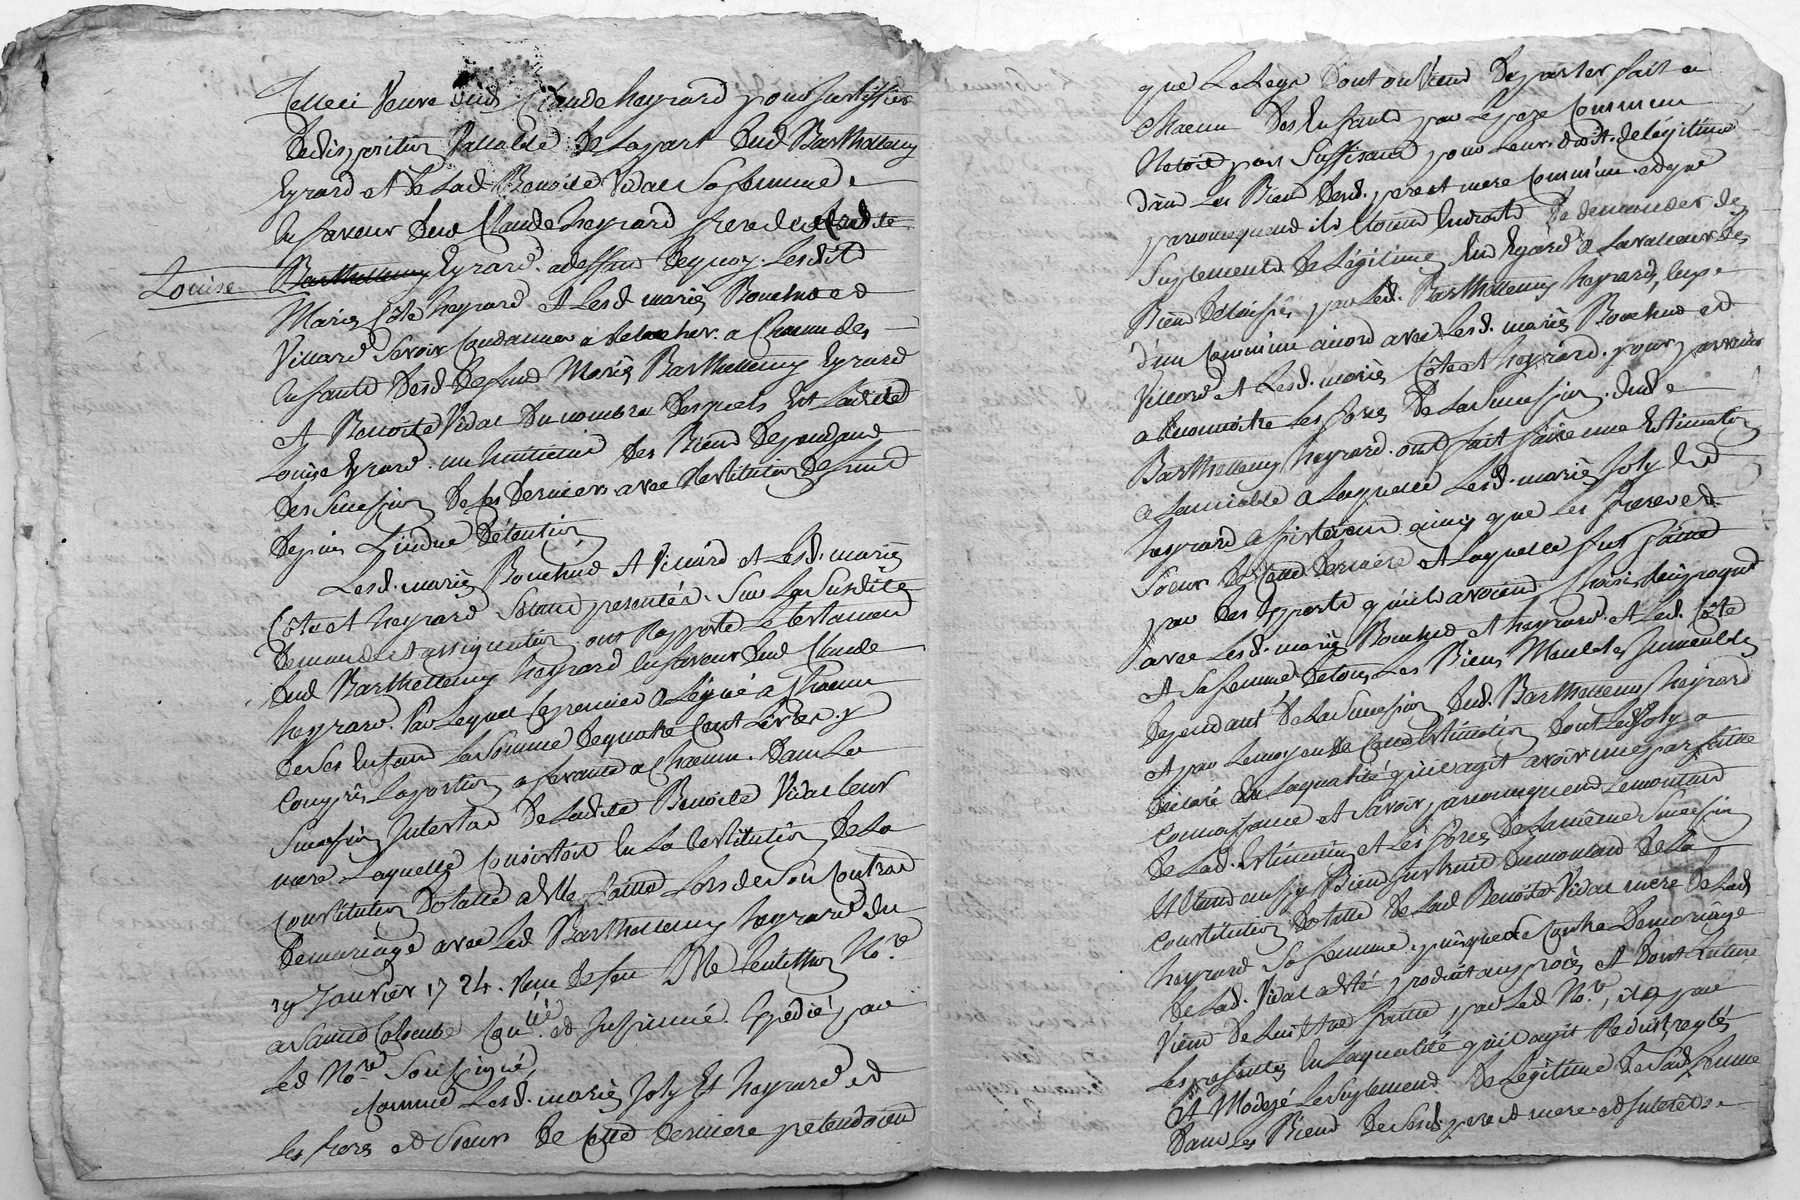 Celleci veuve dud. Claude heyrard pour justiffier
de disposition vallable de la part dud Barthellemy
Eyrard et de lad. Benoite Vidal sa femme.
en faveur dud Claude heyrard frere de ladte
Louise Barthellemy Eyrard. a deffaut de quoy. lesdits
Mariés Côte heyrard et lesd. mariés Bouchud et
Villard se voir Condamner a relacher. a Chacun des
Enfants desd. deffunts Mariés Barthellemy Eyrard
et Benoite Vidal du nombre desquels est laditte
Louise Eyrard. un huitieme des Biens dependants
des Succession de ces derniers avec restitution de fruits
depuis l'indue détention
Lesd. mariés Bouchud et Villard et lesd. mariés
Côte et heyrard s'étant presentés. Sur la susdite
demande et assignation. ont rapporté le testament
dud Barthellemy heyrard en faveur dud Claude
heyrard. Par lequel ce premier a légué a Chacun
de ses Enfants la somme de quatre Cent livres. y
Compris la portion afferante a Chacun. dans la
Succession Intestat de laditte Benoite Vidal leur
mere laquelle Consistoit en la restitution de la
Constitution dotalle a elle faitte lors de son Contrat
de mariage avec led Barthellemy heyrard du
19 Janvier 1724. reçu deffeu Me No.re
a Saint Colombe Con.lé et Insinué. Expedié, par
led No.re soussigné,
Comme lesd. mariés Joly et heyrard et
les freres et Sœurs de Cette derniere pretendoient
que le legs dont on vient de parler fait a
Chacun des Enfants par le pere Commun
n'etoit pas suffisant pour leurs droits de légitime
dans les Biens desd. pere et mere Commun. et que
par consequent ils étoient En droits de demander de
Suplement de légitime Eu Egard a la valleur des
Biens délaissés par led. Barthellemy heyrard,
d'un Commun accord avec lesd. mariés Bouchud et
Villard et lesd. mariés Côte et heyrard. pour parvenir
a Connoitre les forces de la Succession. dud.
Barthellemy heyrard. ont fait faire une Estimation
a l'amiable a laquelle lesd. mariés Joly et
heyrard assisterent ainsy que les freres et
Sœurs de Cette derniere et laquelle fut faitte
par des Experts qu'ils avoient Choisi reciproquement
avec lesd. mariés Bouchud et heyrard. et led. Côte
et sa femme de tous les Biens Meubles Immeubles
dependant de la Succession dud. Barthellemy heyrard
et par le moyen de Cette Estimation dont led Joly a
déclaré en la qualité qu'il agit avoir une parfaitte
Connoissance et savoir par consequent le montant
de lad. Estimation et les forces de la même Succession
Etant aussy Bien Instruit du montant de la
Constitution dotalle de lad Benoite Vidal mere de lad
heyrard sa femme. puisque le Contrat de mariage
de lad. Vidal a été produit au procès et dont lecture
vient de lui être faitte par led No.re, il a par
les presentes en la qualité qu'il agit Reduit reglés
et Moderé le suplement de légitime de lad femme
dans les Biens de sesd. pere et mere et Interets.